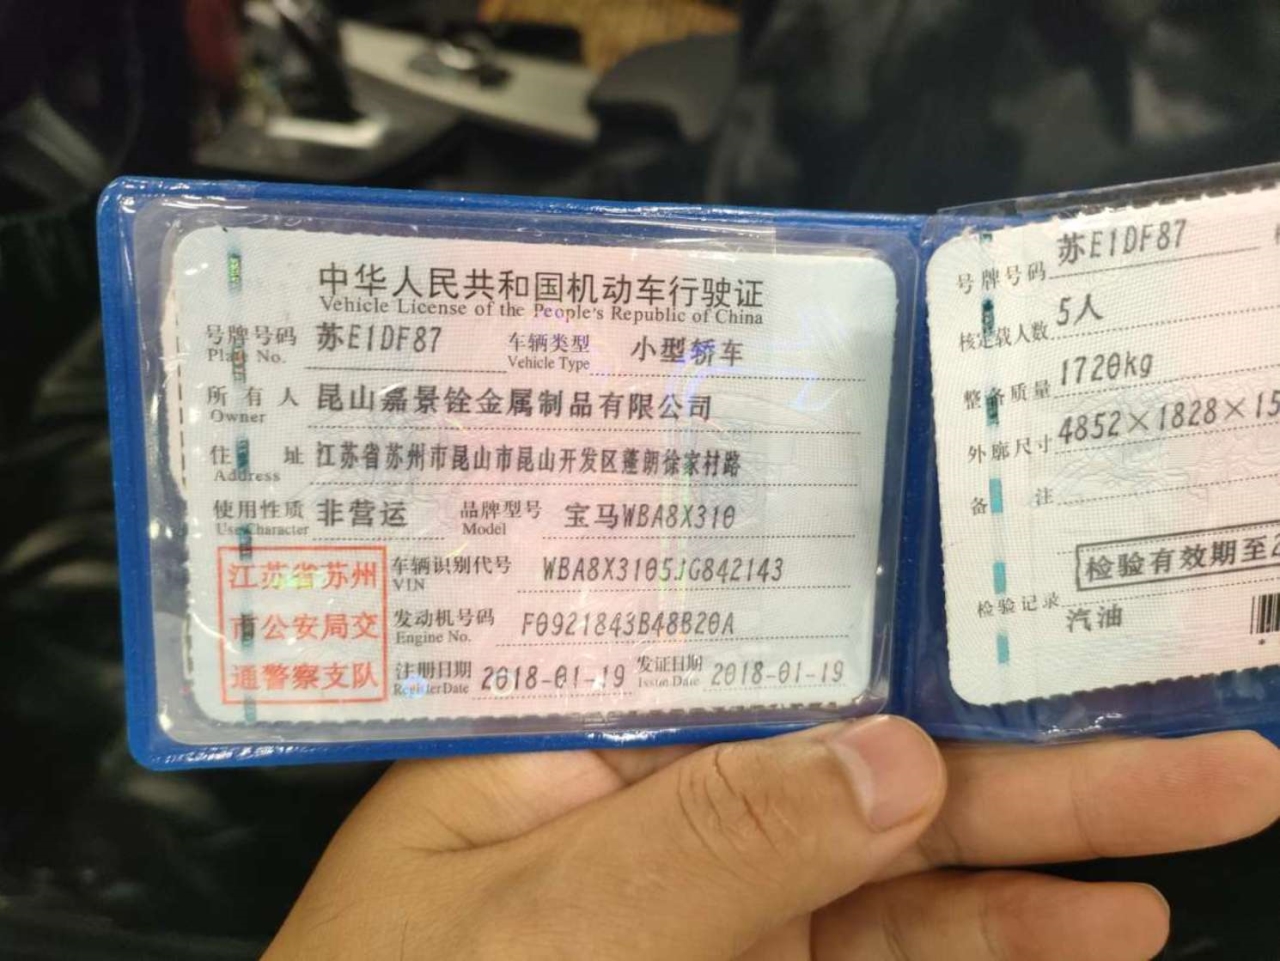 中华人民共和国机动车行驶证
Vehicle License of the People's Republic of China
号牌号码 苏E1DF87 车辆类型 小型轿车
Plate No. Vehicle Type
所有人 昆山嘉景铨金属制品有限公司
Owner
住址 江苏省苏州市昆山市昆山开发区蓬朗徐家村路
Address
使用性质 非营运 品牌型号 宝马WBA8X310
Use Character Model
车辆识别代号 WBA8X3105JG842143
VIN
发动机号码 F0921843B48B20A
Engine No.
注册日期 2018-01-19 发证日期 2018-01-19
Register Date Issue Date
江苏省苏州
市公安局交
通警察支队
号牌号码 苏E1DF87
核定载人数 5人
整备质量 1720kg
外廓尺寸 4852×1828×15
备注
检验有效期至2
检验记录
汽油